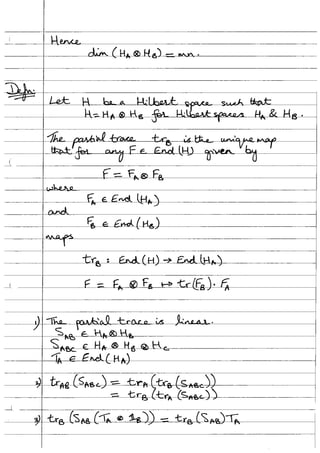 Hence
dim (H_A ⊗ H_B) = mn.
Defn:
Let H be a Hilbert space such that
H = H_A ⊗ H_B for Hilbert spaces H_A & H_B.
The partial trace tr_B is the unique map
that for any F ∈ End (H) given by
F = F_A ⊗ F_B
where
F_A ∈ End (H_A)
and
F_B ∈ End (H_B)
maps
tr_B : End (H) → End (H_A)
F = F_A ⊗ F_B ↦ tr(F_B)· F_A
1) The partial trace is linear.
S_AB ∈ H_A ⊗ H_B
S_ABC ∈ H_A ⊗ H_B ⊗ H_C
T_A ∈ End (H_A)
2) tr_AB (S_ABC) = tr_A (tr_B (S_ABC))
= tr_B (tr_A (S_ABC))
3) tr_B (S_AB (T_A ⊗ 1_B)) = tr_B (S_AB) T_A